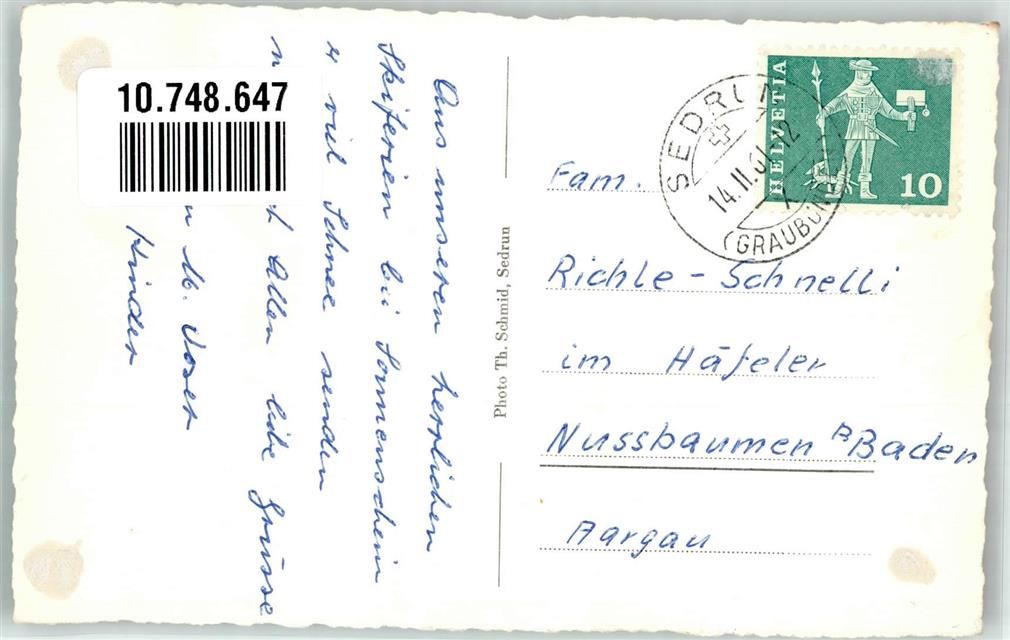 10.748.647
Aus unseren herrlichen
Skiferien bei Sonnenschein
u viel Schnee senden
Allen liebe Grüsse
Kinder
Photo Th. Schmid, Sedrun
SEDRUN
14.II.61-12
(GRAUBÜN
HELVETIA
10
Fam.
Richle - Schnelli
im Häfeler
Nussbaumen B Baden
Aargau